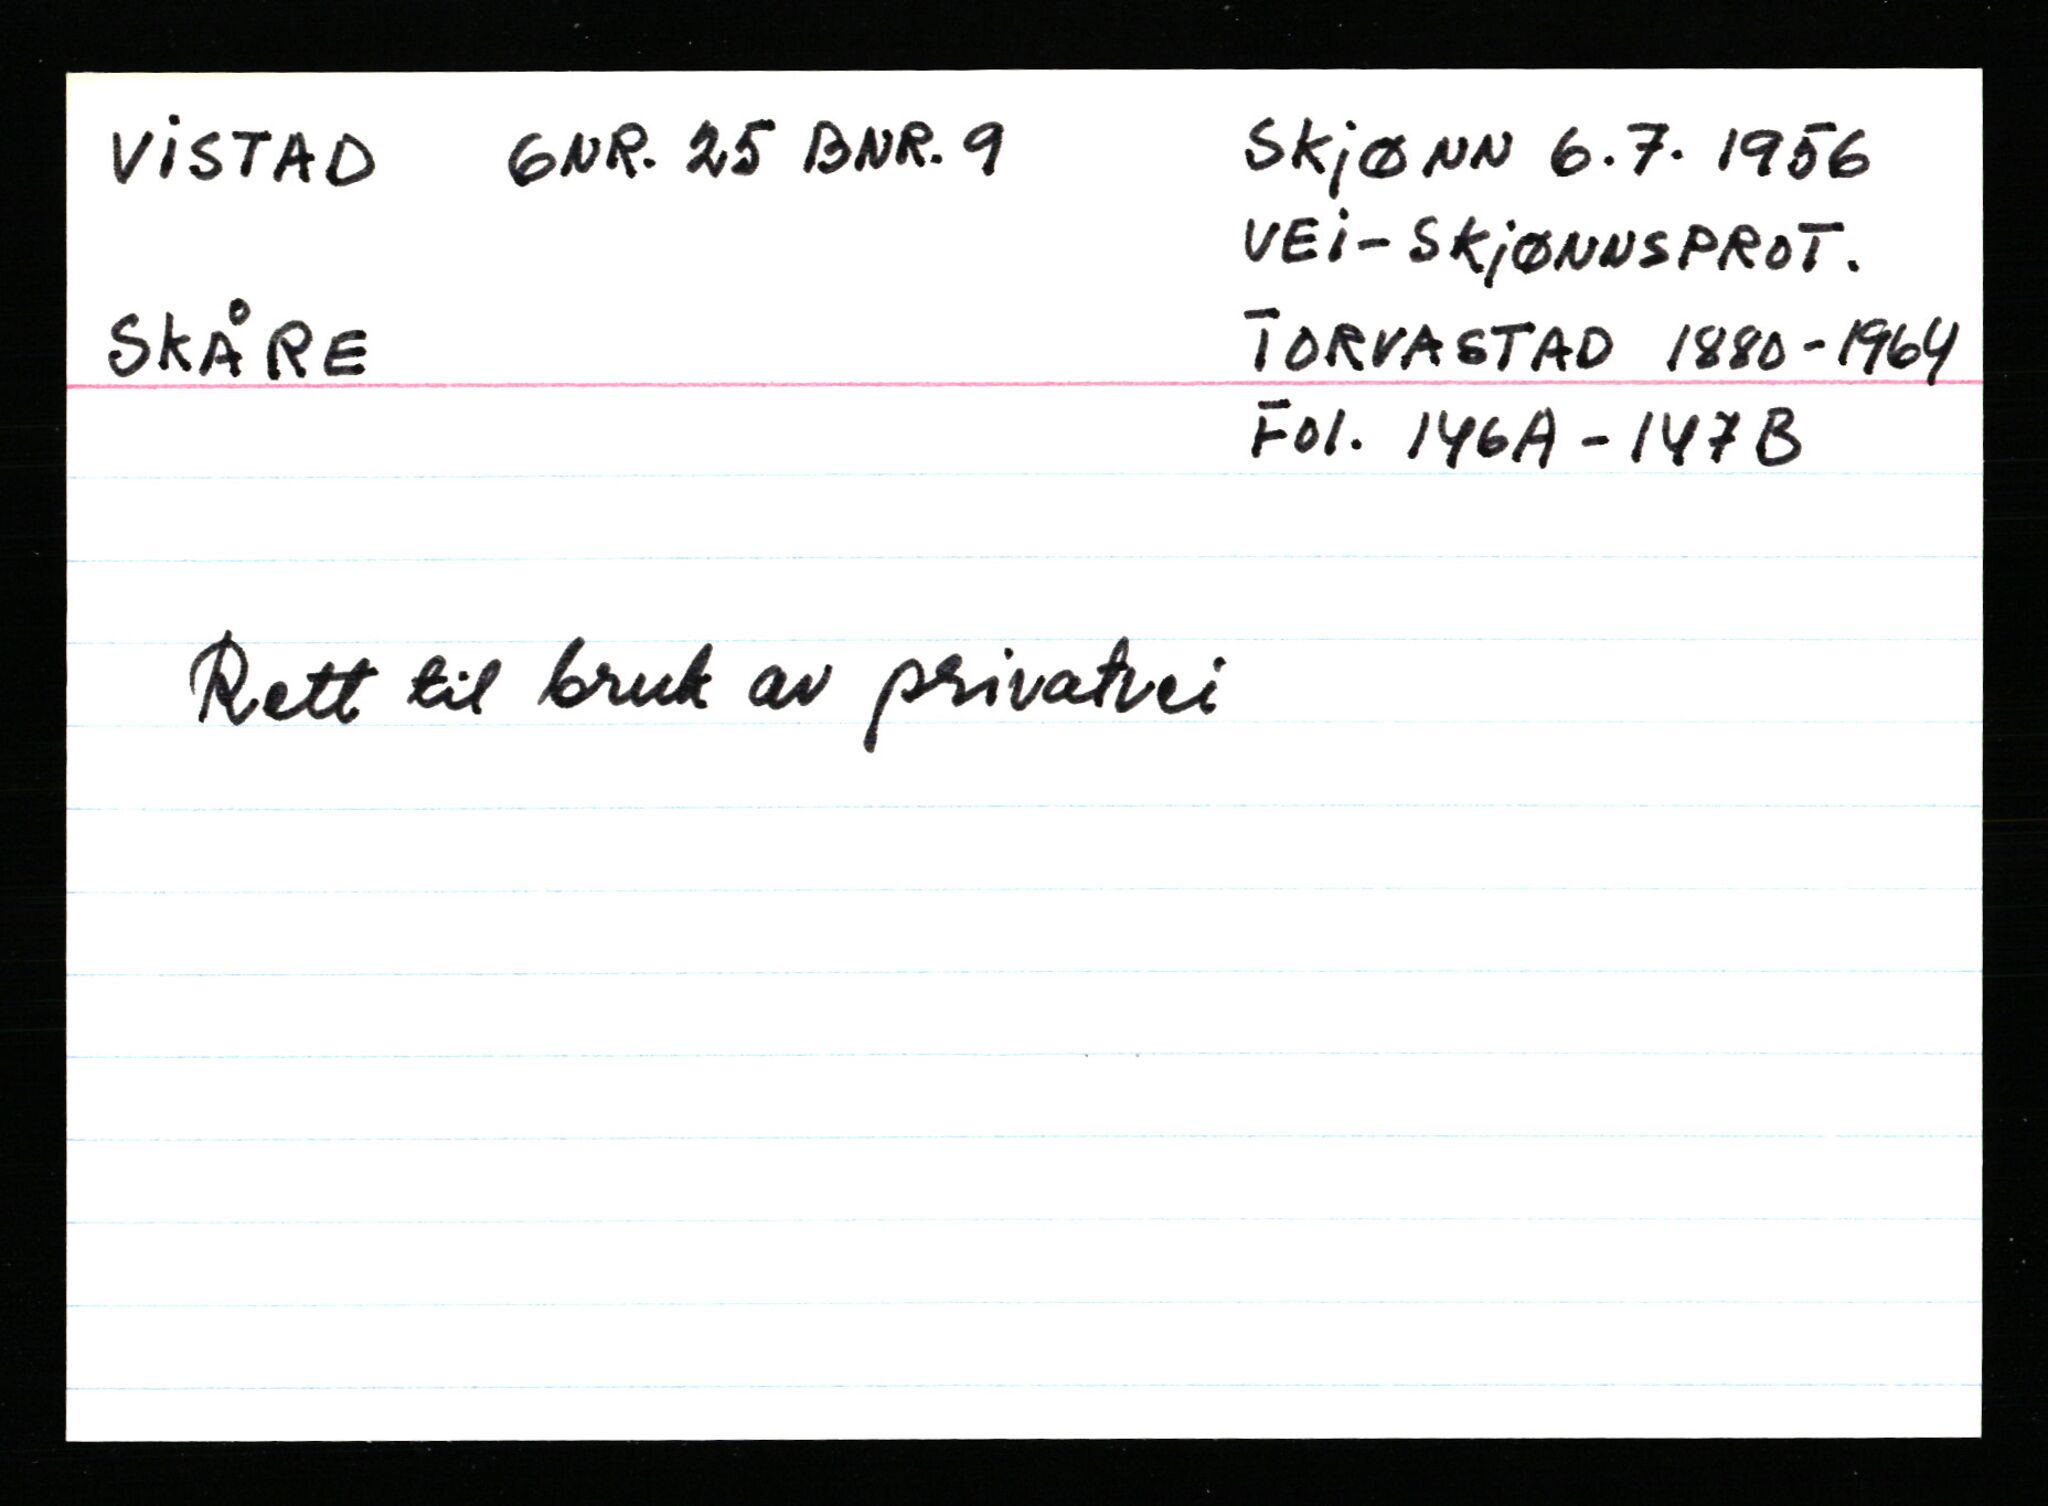 VISTAD GNR. 25 BNR. 9
SKJØNN 6.7. 1956
VEI-SKJØNNSPROT.
SKÅRE
TORVASTAD 1880-1964
Fol. 146A - 147B
Rett til bruk av privatvei